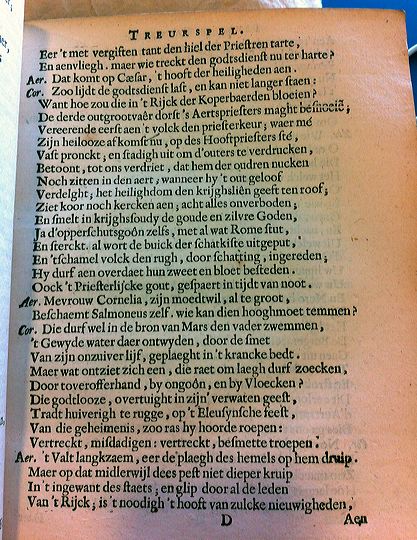 TREURSPEL.
Eer 't met vergiften tant den hiel der Priestren tarte,
En aenvliegh. maer wie treckt den godtsdienst nu ter harte?
Aer. Dat komt op Cæsar, 't hooft der heiligheden aen.
Cor. Zoo lijdt de godtsdienst last, en kan niet langer staen:
Want hoe zou die in 't Rijck der Koperbaerden bloeien?
De derde outgrootvaêr dorst 's Aertspriesters maght besnoeiẽ;
Vereerende eerst aen 't volck den priesterkeur; waer mé
Zijn heilooze afkomst nu, op des Hooftpriesters sté,
Vast pronckt; en stadigh uit om d'outers te verdrucken,
Betoont, tot ons verdriet, dat hem der oudren nucken
Noch zitten in den aert; wanneer hy 't out geloof
Verdelght; het heilighdom den krijghsliên geeft ten roof;
Ziet koor noch kercken aen; acht alles onverboden;
En smelt in krijghssoudy de goude en zilvre Goden,
Ja d'opperschutsgoôn zelfs, met al wat Rome stut,
En sterckt. al wort de buick der schatkiste uitgeput,
En 'tschamel volck den rugh, door schatting, ingereden;
Hy durf aen overdaet hun zweet en bloet besteden.
Oock 't Priesterlijcke gout, gespaert in tijdt van noot.
Aer. Mevrouw Cornelia, zijn moedtwil, al te groot,
Beschaemt Salmoneus zelf. wie kan dien hooghmoet temmen?
Cor. Die durf wel in de bron van Mars den vader zwemmen,
't Gewyde water daer ontwyden, door de smet
Van zijn onzuiver lijf, geplaeght in 't krancke bedt.
Maer wat ontziet zich een, die raet om laegh durf zoecken,
Door toverofferhand, by ongoôn, en by Vloecken?
Die godtlooze, overtuight in zijn' verwaten geest,
Tradt huiverigh te rugge, op 't Eleusynsche feest,
Van die geheimenis, zoo ras hy hoorde roepen:
Vertreckt, misdadigen: vertreckt, besmette troepen.
Aer. 't Valt langkzaem, eer de plaegh des hemels op hem druip.
Maer op dat midlerwijl dees pest niet dieper kruip
In 't ingewant des staets; en glip door al de leden
Van 't Rijck; is 't noodigh 't hooft van zulcke nieuwigheden,
D Aen